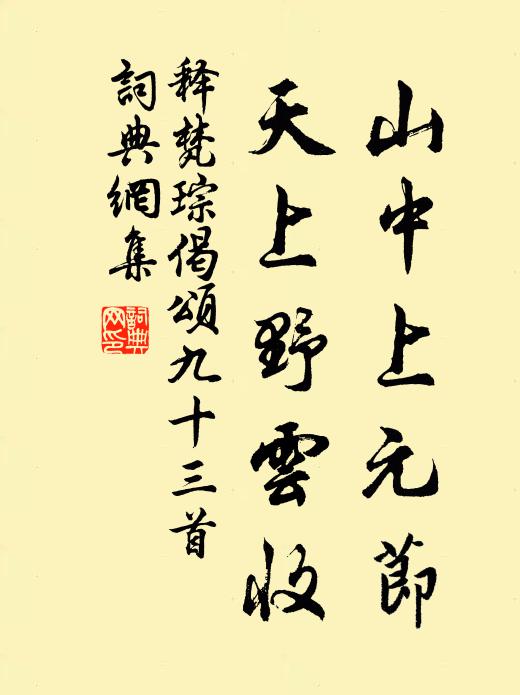 山中上元節
天上野雲收
释梵琮偈頌九十三首
詞典網集
詞典
网印